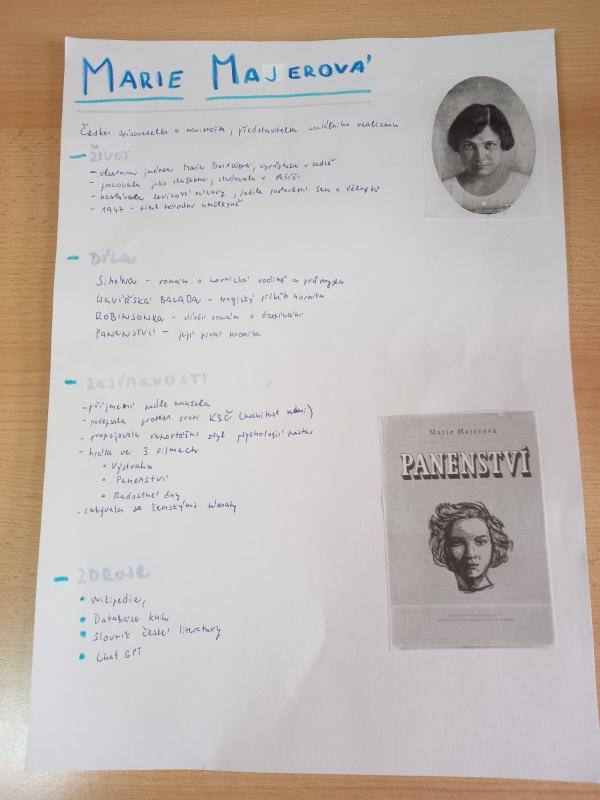 MARIE MAJEROVÁ
Česká spisovatelka a novinářka, představitelka sociálního realismu
- ŽIVOT
- vlastním jménem Marie Bartošová, vyrůstala v
- pracovala jako služebná, studovala v Paříži
- novinové, postavení žen a dělníků
- 1947 - titul národní umělkyně
- DÍLA
SIRÉNA - román o hornické rodině a průmyslu
HAVÍŘSKÁ BALADA - tragický příběh horníka
ROBINSONKA - dívčí román o dospívání
PANENSTVÍ - její první
- ZAJÍMAVOSTI
- příjmení podle manžela
- podepsala protest proti KSČ
- propojovala reportážní styl psychologií postav
- hrála ve 3 filmech
• Výstraha
• Panenství
• Radostné dny
- zabývala se ženskými tématy
- ZDROJE
• Wikipedie,
• Databáze knih
• Slovník české literatury
• Chat GPT
Marie Majerová
PANENSTVÍ